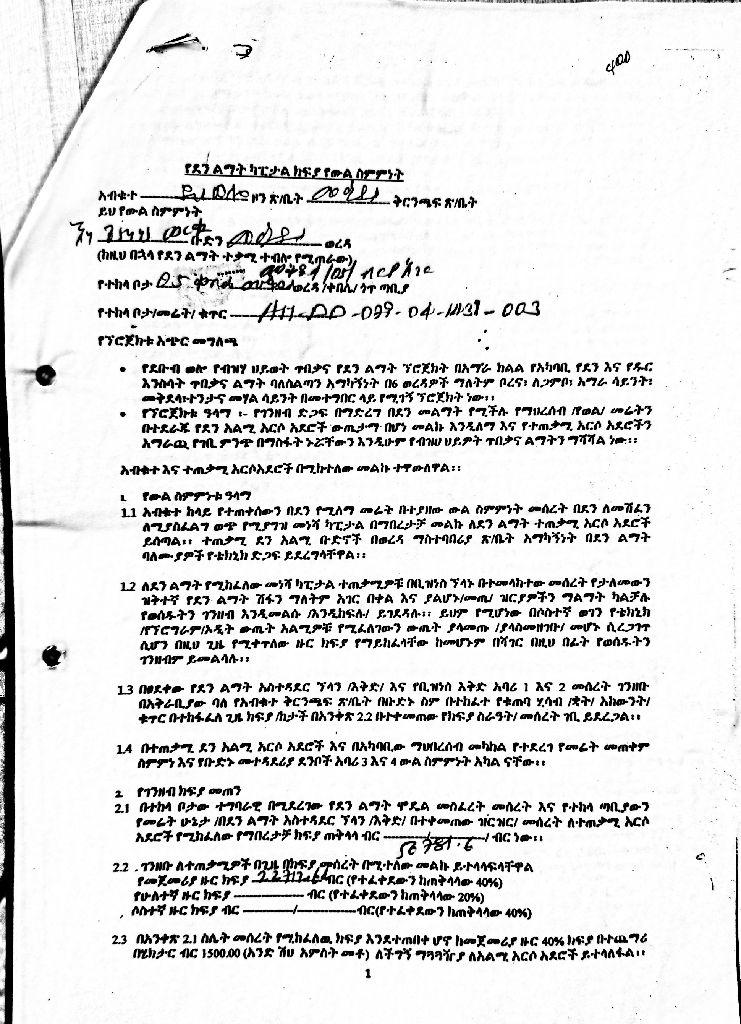 400
የደን ልማት ካፒታል ክፍያ የውል ስምምነት
አብቁተ ዞን ጽ/ቤት ቅርንጫፍ ጽ/ቤት
ይህ የውል ስምምነት
ቡድን ወረዳ
(ከዚህ በኋላ የደን ልማት ተቃሚ ተብሎ የሚጠራው)
የተከላ ቦታ ወረዳ /ቀበሌ/ ጎጥ ጣቢያ
የተከላ ቦታ/መሬት/ ቁጥር AH-DD-099-04- - 003
የፕሮጀክቱ አጭር መግለጫ
• የደቡብ ወሎ የብዝሃ ህይወት ጥበቃና የደን ልማት ፕሮጀክት በአማራ ክልል የአካባቢ የደን እና የዱር
እንስሳት ጥበቃና ልማት ባለስልጣን አማካኝነት በ6 ወረዳዎች ማለትም ቦረና፣ ለጋምቦ፣ አማራ ሳይንት፣
መቅደላ፣ተንታና መሃል ሳይንት በመተግበር ላይ የሚገኝ ፕሮጀክት ነው፡፡
• የፕሮጀክቱ ዓላማ ፡- የገንዘብ ድጋፍ በማድረግ በደን መልማት የሚችሉ የማህረሰብ /የወል/ መሬትን
በተደራጁ የደን አልሚ አርሶ አደሮች ውጤታማ በሆነ መልኩ እንዲለማ እና የተጠቃሚ አርሶ አደሮችን
አማራጪ የገቢ ምንጭ በማስፋት ኑሯቸውን እንዲሁም የብዝሃ ህይዎት ጥበቃና ልማትን ማሻሻል ነው፡፡
አብቁተ እና ተጠቃሚ አርሶአደሮች በሚከተለው መልኩ ተዋውለዋል፡፡
1. የውል ስምምነቱ ዓላማ
1.1 አብቁተ ከላይ የተጠቀሰውን በደን የሚለማ መሬት በተያዘው ውል ስምምነት መሰረት በደን ለመሸፈን
ለሚያስፈልግ ወጭ የሚያግዝ መነሻ ካፒታል በማበረታቻ መልኩ ለደን ልማት ተጠቃሚ አርሶ አደሮች
ይሰጣል፡፡ ተጠቃሚ ደን አልሚ ቡድኖች በወረዳ ማስተባበሪያ ጽ/ቤት አማካኝነት በደን ልማት
ባለሙያዎች የቴክኒክ ድጋፍ ይደረግላቸዋል፡፡
1.2 ለደን ልማት የሚከፈለው መነሻ ካፒታል ተጠቃሚዎቹ በቢዝነስ ፕላኑ በተመላከተው መሰረት የታለመውን
ዝቅተኛ የደን ልማት ሽፋን ማለትም አገር በቀል እና ያልሆኑ/መጤ/ ዝርያዎችን ማልማት ካልቻሉ
የወሰዱትን ገንዘብ እንዲመልሱ /እንዲከፍሉ/ ይገደዳሉ፡፡ ይህም የሚሆነው በሶስተኛ ወገን የቴክኒክ
/የፕሮግራም/ኦዲት ውጤት አልሚዎቹ የሚፈለገውን ውጤት ያላመጡ /ያላስመዘገቡ/ መሆኑ ሲረጋገጥ
ሲሆን በዚህ ጊዜ የሚቀጥለው ዙር ክፍያ የማይከፈላቸው ከመሆኑም በሻገር በዚህ በፊት የወሰዱትን
ገንዘብም ይመልሳሉ፡፡
1.3 በፀደቀው የደን ልማት አስተዳደር ፕላን /እቅድ/ እና የቢዝነስ እቅድ አባሪ 1 እና 2 መሰረት ገንዘቡ
በአቅራቢያው ባለ የአብቁተ ቅርንጫፍ ጽ/ቤት በቡድኑ ስም በተከፈተ የቁጠባ ሂሳብ /ቋት/ አካውንት/
ቁጥር በተከፋፈለ ጊዜ ክፍያ /ከታች በአንቀጽ 2.2 በተቀመጠው የክፍያ ስራዓት/ መሰረት ገቢ ይደረጋል፡፡
1.4 በተጠቃሚ ደን አልሚ አርሶ አደሮች እና በአካባቢው ማህበረሰብ መካከል የተደረገ የመሬት መጠቀም
ስምምነ እና የቡድኑ መተዳደሪያ ደንቦች አባሪ 3 እና 4 ውል ስምምነት አካል ናቸው፡፡
2. የገንዘብ ክፍያ መጠን
2.1 በተከላ ቦታው ተግባራዊ በሚደረገው የደን ልማት ሞዴል መስፈረት መሰረት እና የተከላ ጣቢያውን
የመሬት ሁኔታ /በደን ልማት አስተዳደር ፕላን /እቅድ/ በተቀመጠው ዝርዝር/ መሰረት ለተጠቃሚ አርሶ
አደሮች የሚከፈለው የማበረታቻ ክፍያ ጠቅላላ ብር ----------/----------/ ብር ነው፡፡
56781.6
2.2 ገንዘቡ ለተጠቃሚዎች በጊዜ በክፍያ መሰረት በሚተለው መልኩ ይተላለፍላቸዋል
የመጀመሪያ ዙር ክፍያ 22712.64 ብር (የተፈቀደውን ከጠቅላላው 40%)
የሁለተኛ ዙር ክፍያ ---------------- ብር (የተፈቀደውን ከጠቅላላው 20%)
ሶስተኛ ዙር ክፍያ ብር ------------/------------ብር(የተፈቀደውን ከጠቅላላው 40%)
2.3 በአንቀጽ 2.1 ስሌት መሰረት የሚከፈለዉ ክፍያ እንደተጠበቀ ሆኖ ከመጀመሪያ ዙር 40% ክፍያ በተጨማሪ
በሄክታር ብር 1500.00 (አንድ ሽህ አምስት መቶ) ለችግኝ ማጓጓዣ ለአልሚ አርሶ አደሮች ይተላለፋል፡፡
1